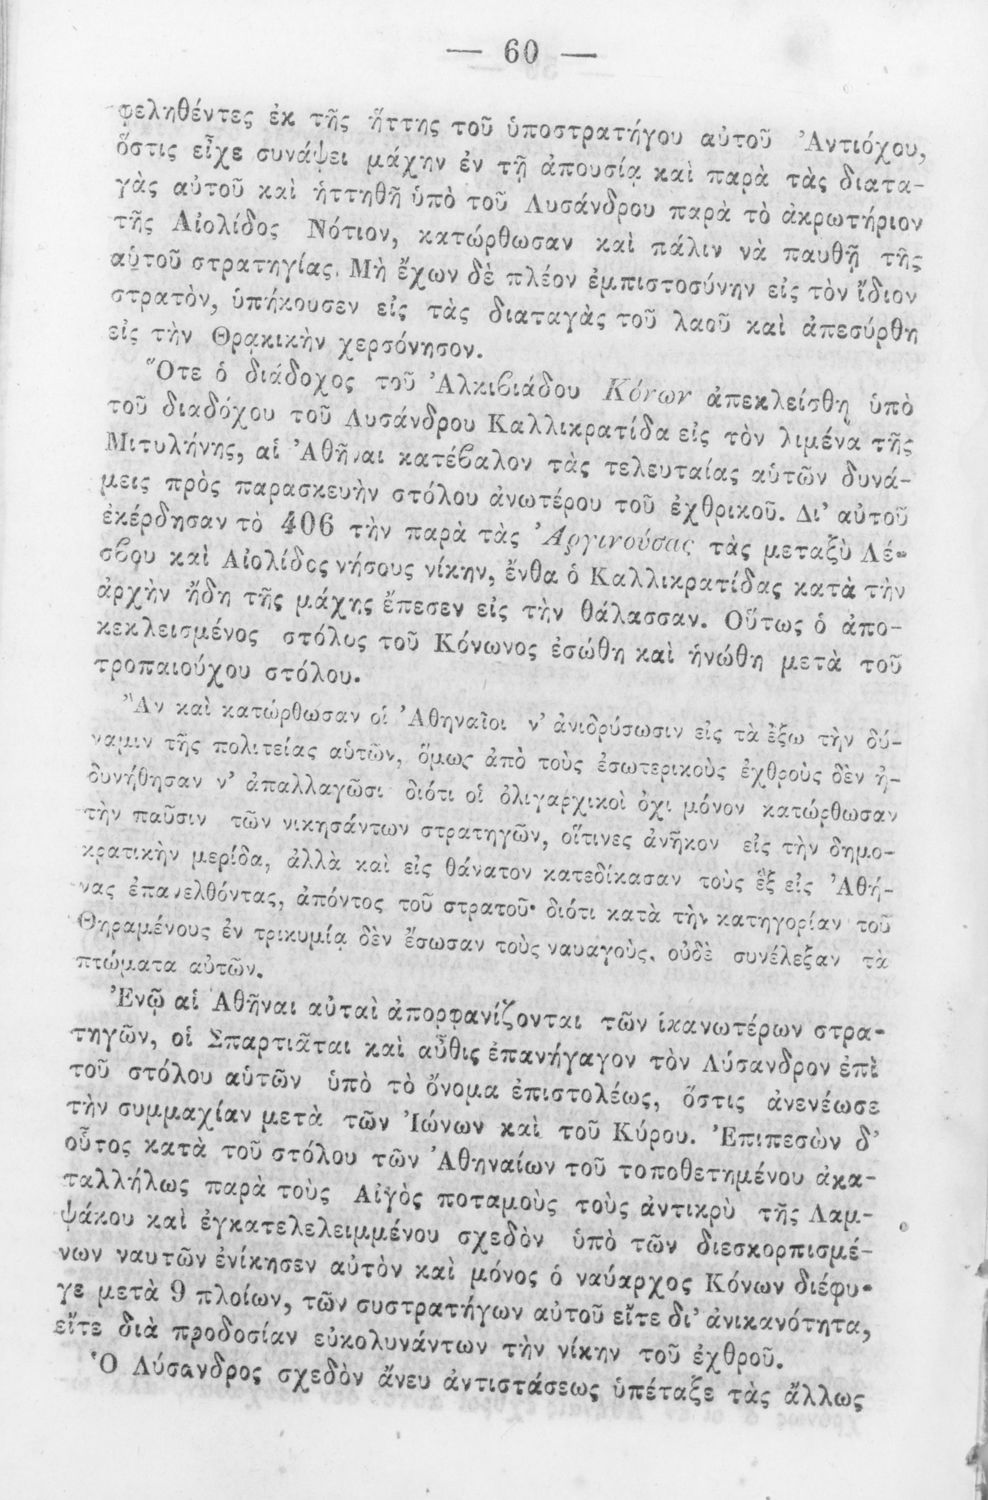 — 60 —
φεληθέντες ἐκ τῆς ἥττης τοῦ ὑποστρατήγου αὐτοῦ Ἀντιόχου,
ὅστις εἶχε συνάψει μάχην ἐν τῇ ἀπουσίᾳ καὶ παρὰ τὰς διατα-
γὰς αὐτοῦ καὶ ἡττηθῆ ὑπὸ τοῦ Λυσάνδρου παρὰ τὸ ἀκρωτήριον
τῆς Αἰολίδος Νότιον, κατώρθωσαν καὶ πάλιν νὰ παυθῇ τῆς
αὑτοῦ στρατηγίας. Μὴ ἔχων δὲ πλέον ἐμπιστοσύνην εἰς τὸν ἴδιον
στρατὸν, ὑπήκουσεν εἰς τὰς διαταγὰς τοῦ λαοῦ καὶ ἀπεσύρθη
εἰς τὴν Θρᾳκικὴν χερσόνησον.
Ὅτε ὁ διάδοχος τοῦ Ἀλκιβιάδου Κόνων ἀπεκλείσθη ὑπὸ
τοῦ διαδόχου τοῦ Λυσάνδρου Καλλικρατίδα εἰς τὸν λιμένα τῆς
Μιτυλήνης, αἱ Ἀθῆναι κατέβαλον τὰς τελευταίας αὑτῶν δυνά-
μεις πρὸς παρασκευὴν στόλου ἀνωτέρου τοῦ ἐχθρικοῦ. Δι' αὐτοῦ
ἐκέρδησαν τὸ 406 τὴν παρὰ τὰς Ἀργινούσας τὰς μεταξὺ Λέ-
σβου καὶ Αἰολίδος νήσους νίκην, ἔνθα ὁ Καλλικρατίδας κατὰ τὴν
ἀρχὴν ἤδη τῆς μάχης ἔπεσεν εἰς τὴν θάλασσαν. Οὕτως ὁ ἀπο-
κεκλεισμένος στόλος τοῦ Κόνωνος ἐσώθη καὶ ἡνώθη μετὰ τοῦ
τροπαιούχου στόλου.
Ἂν καὶ κατώρθωσαν οἱ Ἀθηναῖοι ν' ἀνιδρύσωσιν εἰς τὰ ἔξω τὴν δύ-
ναμιν τῆς πολιτείας αὑτῶν, ὅμως ἀπὸ τοὺς ἐσωτερικοὺς ἐχθροὺς δὲν ἠ-
δυνήθησαν ν' ἀπαλλαγῶσι· διότι οἱ ὀλιγαρχικοὶ ὀχι μόνον κατώρθωσαν
τὴν παῦσιν τῶν νικησάντων στρατηγῶν, οἵτινες ἀνῆκον εἰς τὴν δημο-
κρατικὴν μερίδα, ἀλλὰ καὶ εἰς θάνατον κατεδίκασαν τοὺς ἓξ εἰς Ἀθή-
νας ἐπανελθόντας, ἀπόντος τοῦ στρατοῦ· διότι κατὰ τὴν κατηγορίαν τοῦ
Θηραμένους ἐν τρικυμίᾳ δὲν ἔσωσαν τοὺς ναυαγοὺς, οὐδὲ συνέλεξαν τὰ
πτώματα αὐτῶν.
Ἐνῷ αἱ Ἀθῆναι αὐταὶ ἀπορφανίζονται τῶν ἱκανωτέρων στρα-
τηγῶν, οἱ Σπαρτιᾶται καὶ αὖθις ἐπανήγαγον τὸν Λύσανδρον ἐπὶ
τοῦ στόλου αὑτῶν ὑπὸ τὸ ὄνομα ἐπιστολέως, ὅστις ἀνενέωσε
τὴν συμμαχίαν μετὰ τῶν Ἰώνων καὶ τοῦ Κύρου. Ἐπιπεσὼν δ'
οὗτος κατὰ τοῦ στόλου τῶν Ἀθηναίων τοῦ τοποθετημένου ἀκα-
ταλλήλως παρὰ τοὺς Αἰγὸς ποταμοὺς τοὺς ἀντικρὺ τῆς Λαμ-
ψάκου καὶ ἐγκατελελειμμένου σχεδὸν ὑπὸ τῶν διεσκορπισμέ-
νων ναυτῶν ἐνίκησεν αὐτὸν καὶ μόνος ὁ ναύαρχος Κόνων διέφυ-
γε μετὰ 9 πλοίων, τῶν συστρατήγων αὐτοῦ εἴτε δι' ἀνικανότητα,
εἴτε διὰ προδοσίαν εὐκολυνάντων τὴν νίκην τοῦ ἐχθροῦ.
Ὁ Λύσανδρος σχεδὸν ἄνευ ἀντιστάσεως ὑπέταξε τὰς ἄλλως